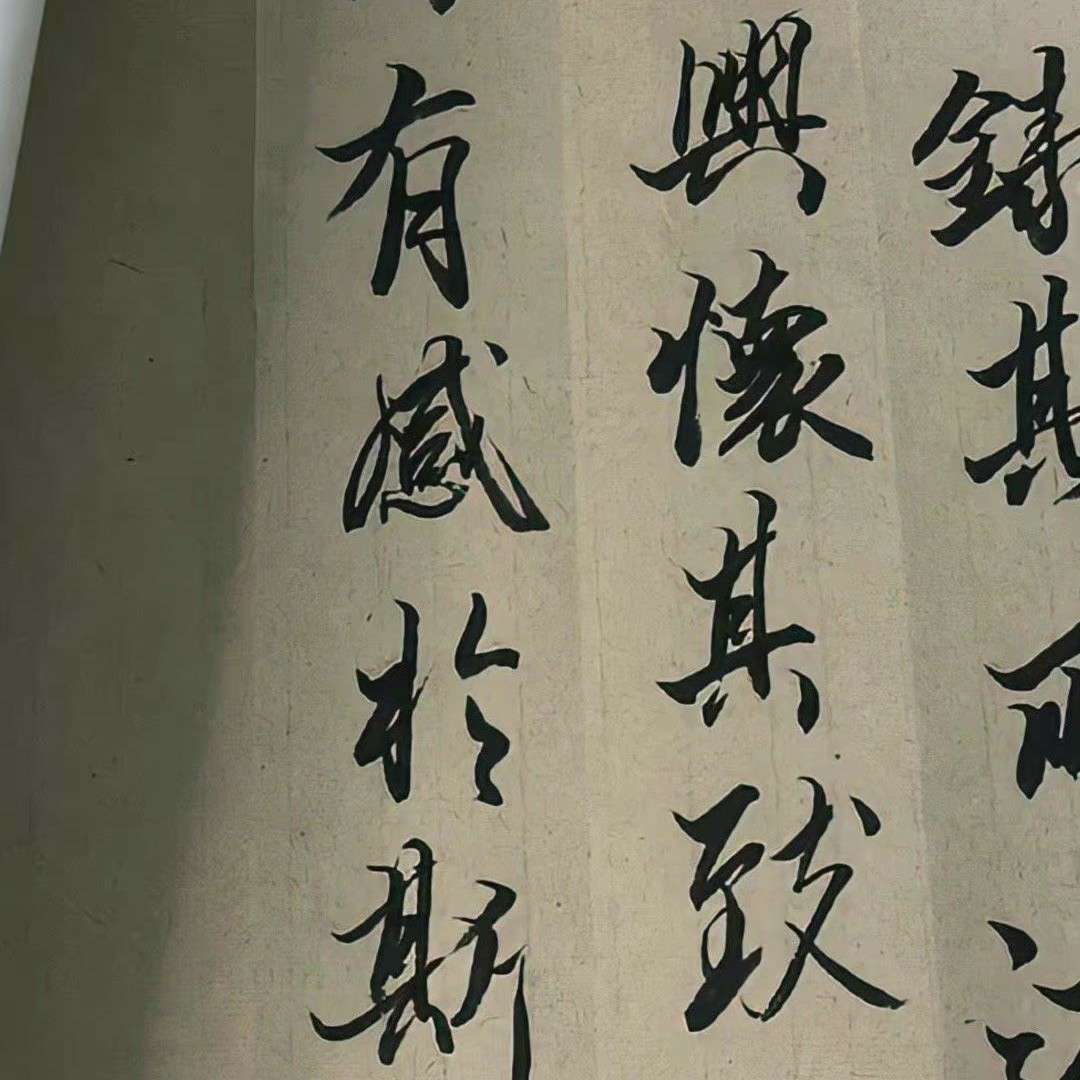 錄其所
興懷其致
有感於斯